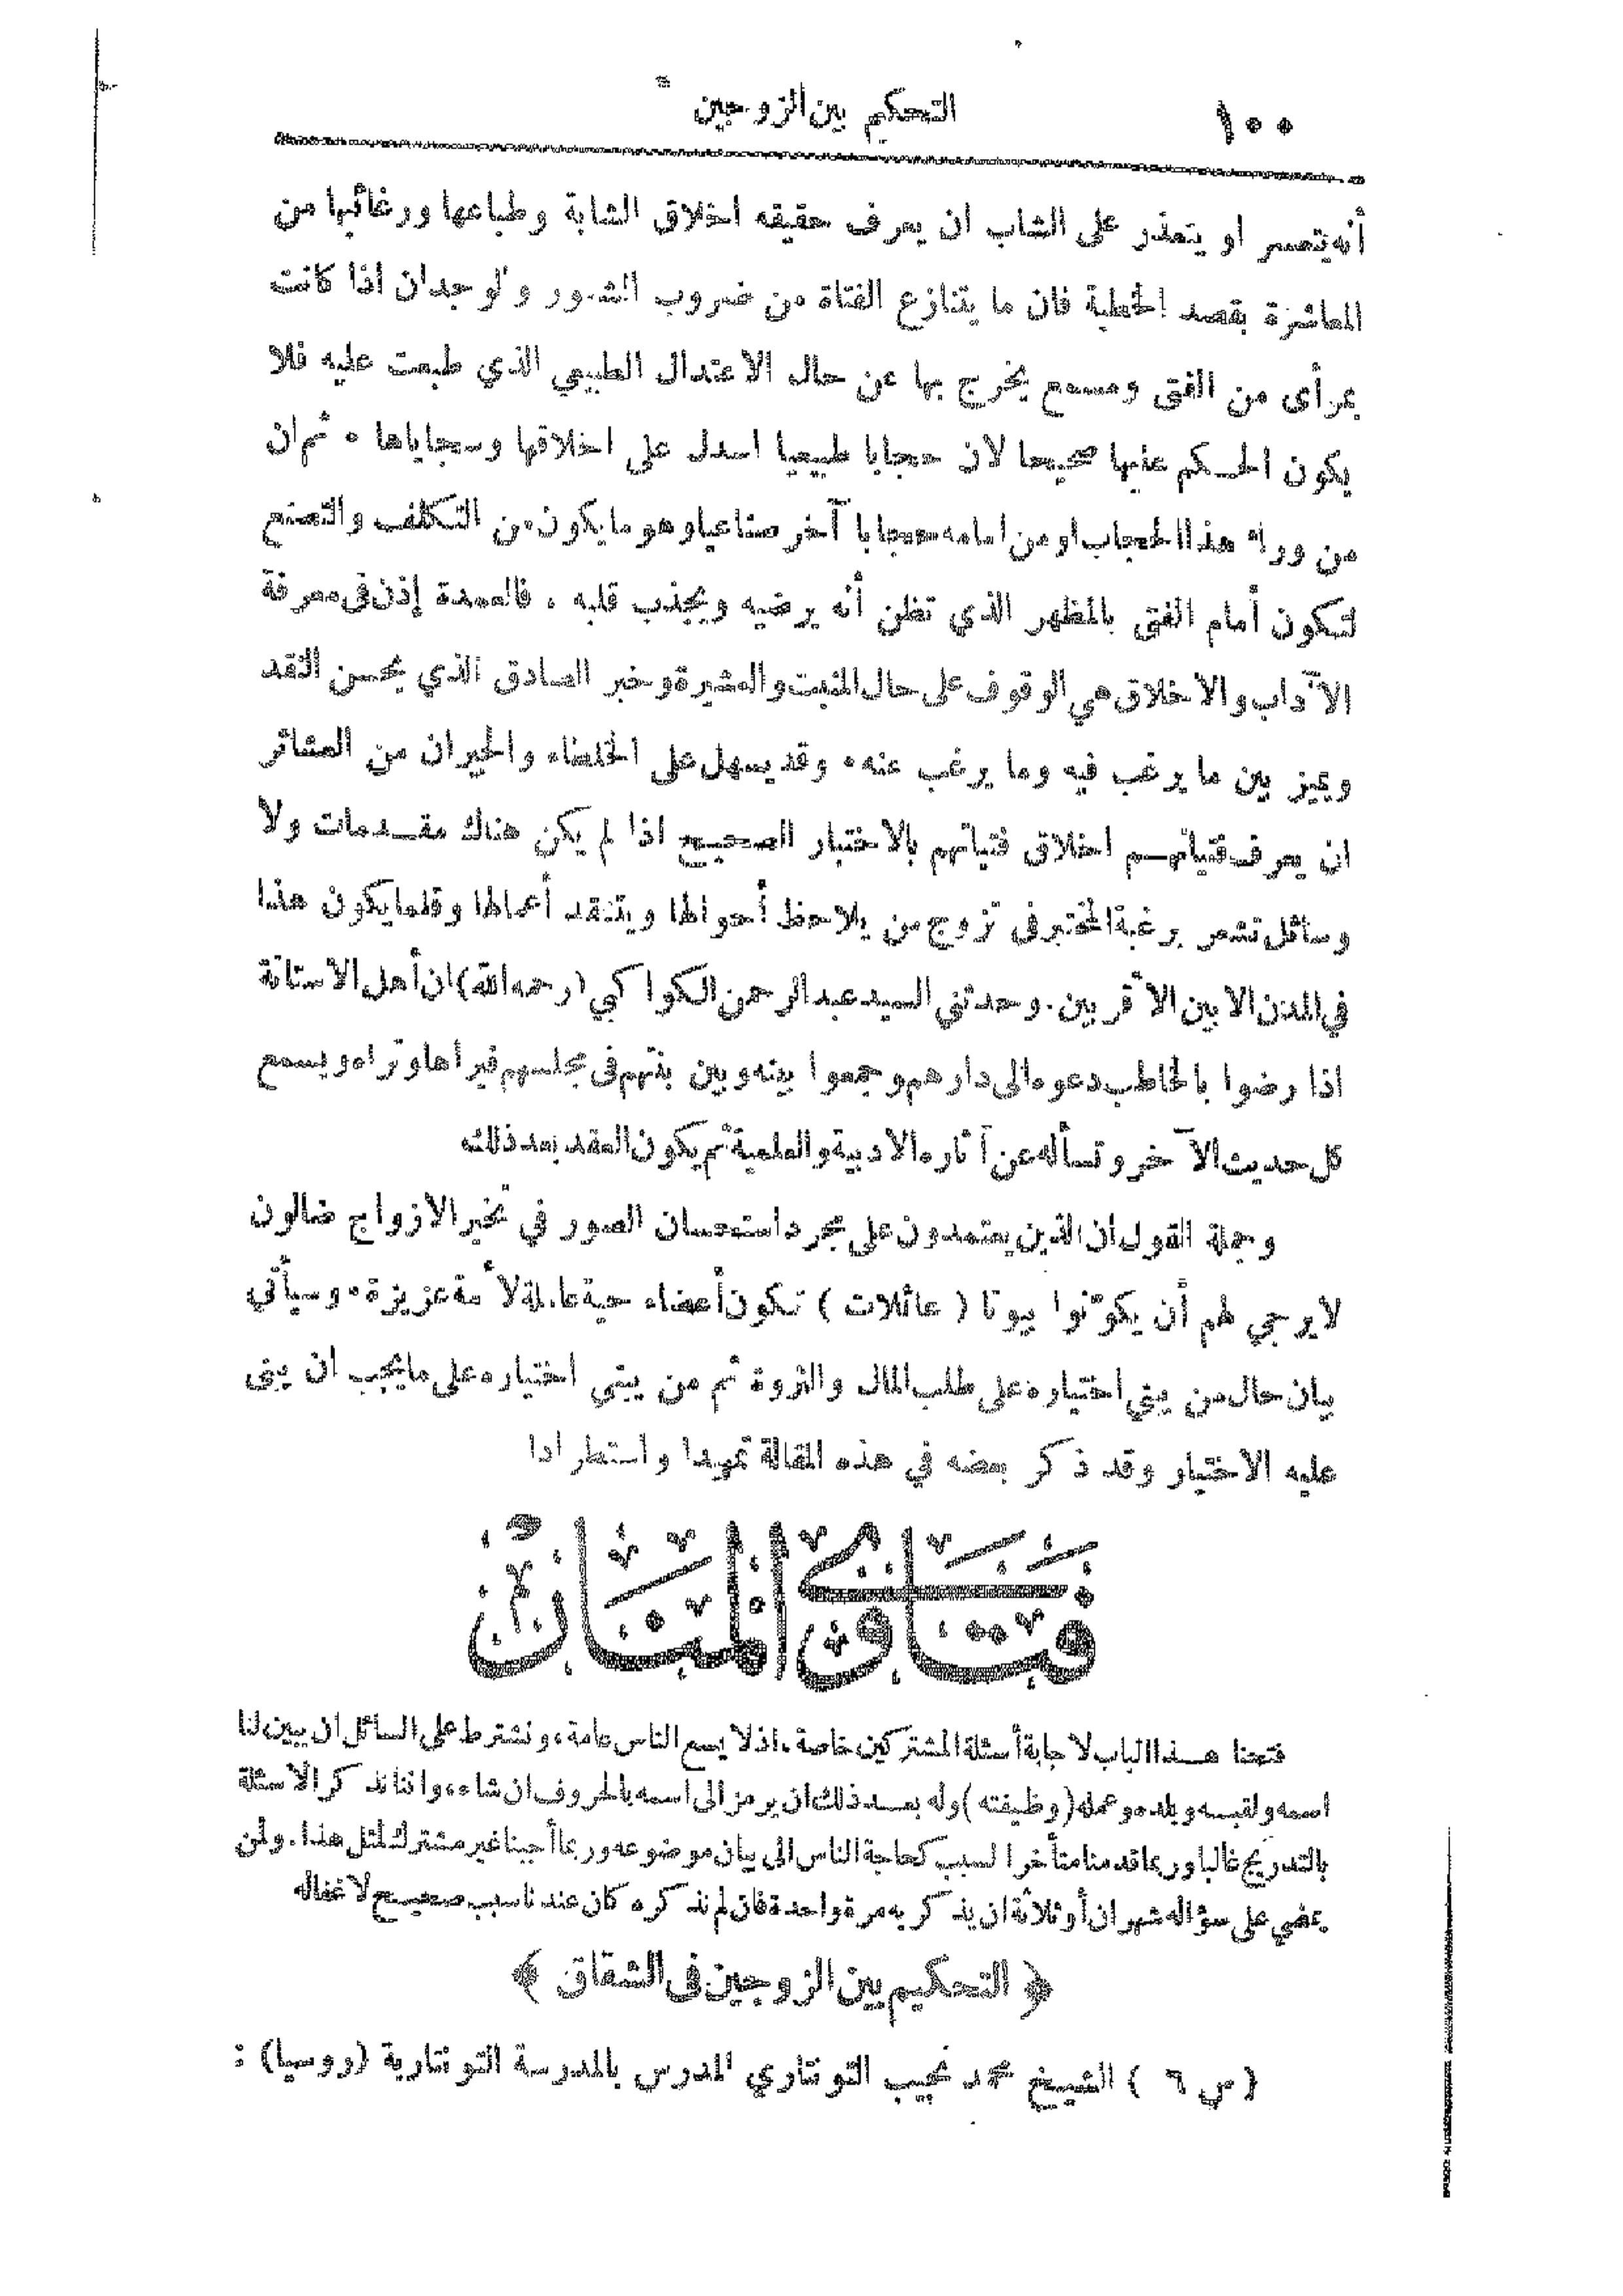 ١٠٠ التحكيم بين الزوجين
أنه يتعسر او يتعذر على الشاب ان يعرف حقيقه اخلاق الشابة وطباعها ورغائبها من
المعاشرة بقصد الخطبة فان ما يتنازع الفتاة من ضروب الشعور والوجدان اذا كانت
بمرأى من الفتى ومسمع يخرج بها عن حال الاعتدال الطبيعي الذي طبعت عليه فلا
يكون الحكم عليها صحيحا لان حجابا طبيعيا اسدل على اخلاقها وسجاياها ٠ ثم ان
من وراء هذا الحجاب او من امامه حجابا آخر صناعيا وهو ما يكون من التكلف والتصنع
لتكون أمام الفتى بالمظهر الذي تظن أنه يرضيه ويجذب قلبه ، فالعمدة إذن في معرفة
الآداب والاخلاق هي الوقوف على حال المنبت والعشيرة وخبر الصادق الذي يحسن النقد
ويميز بين ما يرغب فيه وما يرغب عنه ٠ وقد يسهل على الخلطاء والجيران من العشائر
ان يعرف فتيانهم اخلاق فتياتهم بالاختبار الصحيح اذا لم يكن هناك مقدمات ولا
وسائل تشعر برغبة المختبر في تزوج من يلاحظ أحوالها ويتنقد أعمالها وقلما يكون هذا
في المدن الا بين الأقربين . وحدثني السيد عبد الرحمن الكواكبي (رحمه الله) ان أهل الاستانة
اذا رضوا بالخاطب دعوه الى دارهم وجمعوا بينه وبين بنتهم في مجلسهم فيراها وتراه ويسمع
كل حديث الآخر وتسأله عن آثاره الادبية والعلمية ثم يكون العقد بعد ذلك
وجملة القول ان الذين يعتمدون على مجرد استحسان الصور في تخير الازواج ضالون
لا يرجى لهم أن يكوّنوا بيوتا ( عائلات ) تكون أعضاء حية عاملة لأمة عزيزة ٠ وسيأتي
بيان حال من يبني اختياره على طلب المال والثروة ثم من يبني اختياره على ما يجب ان يبنى
عليه الاختيار وقد ذكر بعضه في هذه المقالة تمهيدا واستطرادا
فتاوى المنار
فتحنا هذا الباب لاجابة أسئلة المشتركين خاصة ، اذ لا يسع الناس عامة ، ونشترط على السائل ان يبين لنا
اسمه ولقبه وبلده وعمله (وظيفته) وله بعد ذلك ان يرمز الى اسمه بالحروف ان شاء ، واننا نذكر الاسئلة
بالتدريج غالبا وربما قدمنا متأخرا لسبب كحاجة الناس الى بيان موضوعه وربما أجبنا غير مشترك لمثل هذا . ولمن
يمضي على سؤاله شهران أو ثلاثة ان يذكر به مرة واحدة فان لم نذكره كان عندنا سبب صحيح لاغفاله
﴿ التحكيم بين الزوجين في الشقاق ﴾
(س ٦ ) الشيخ محمد نجيب التونتاري المدرس بالمدرسة التونتارية (روسيا) :